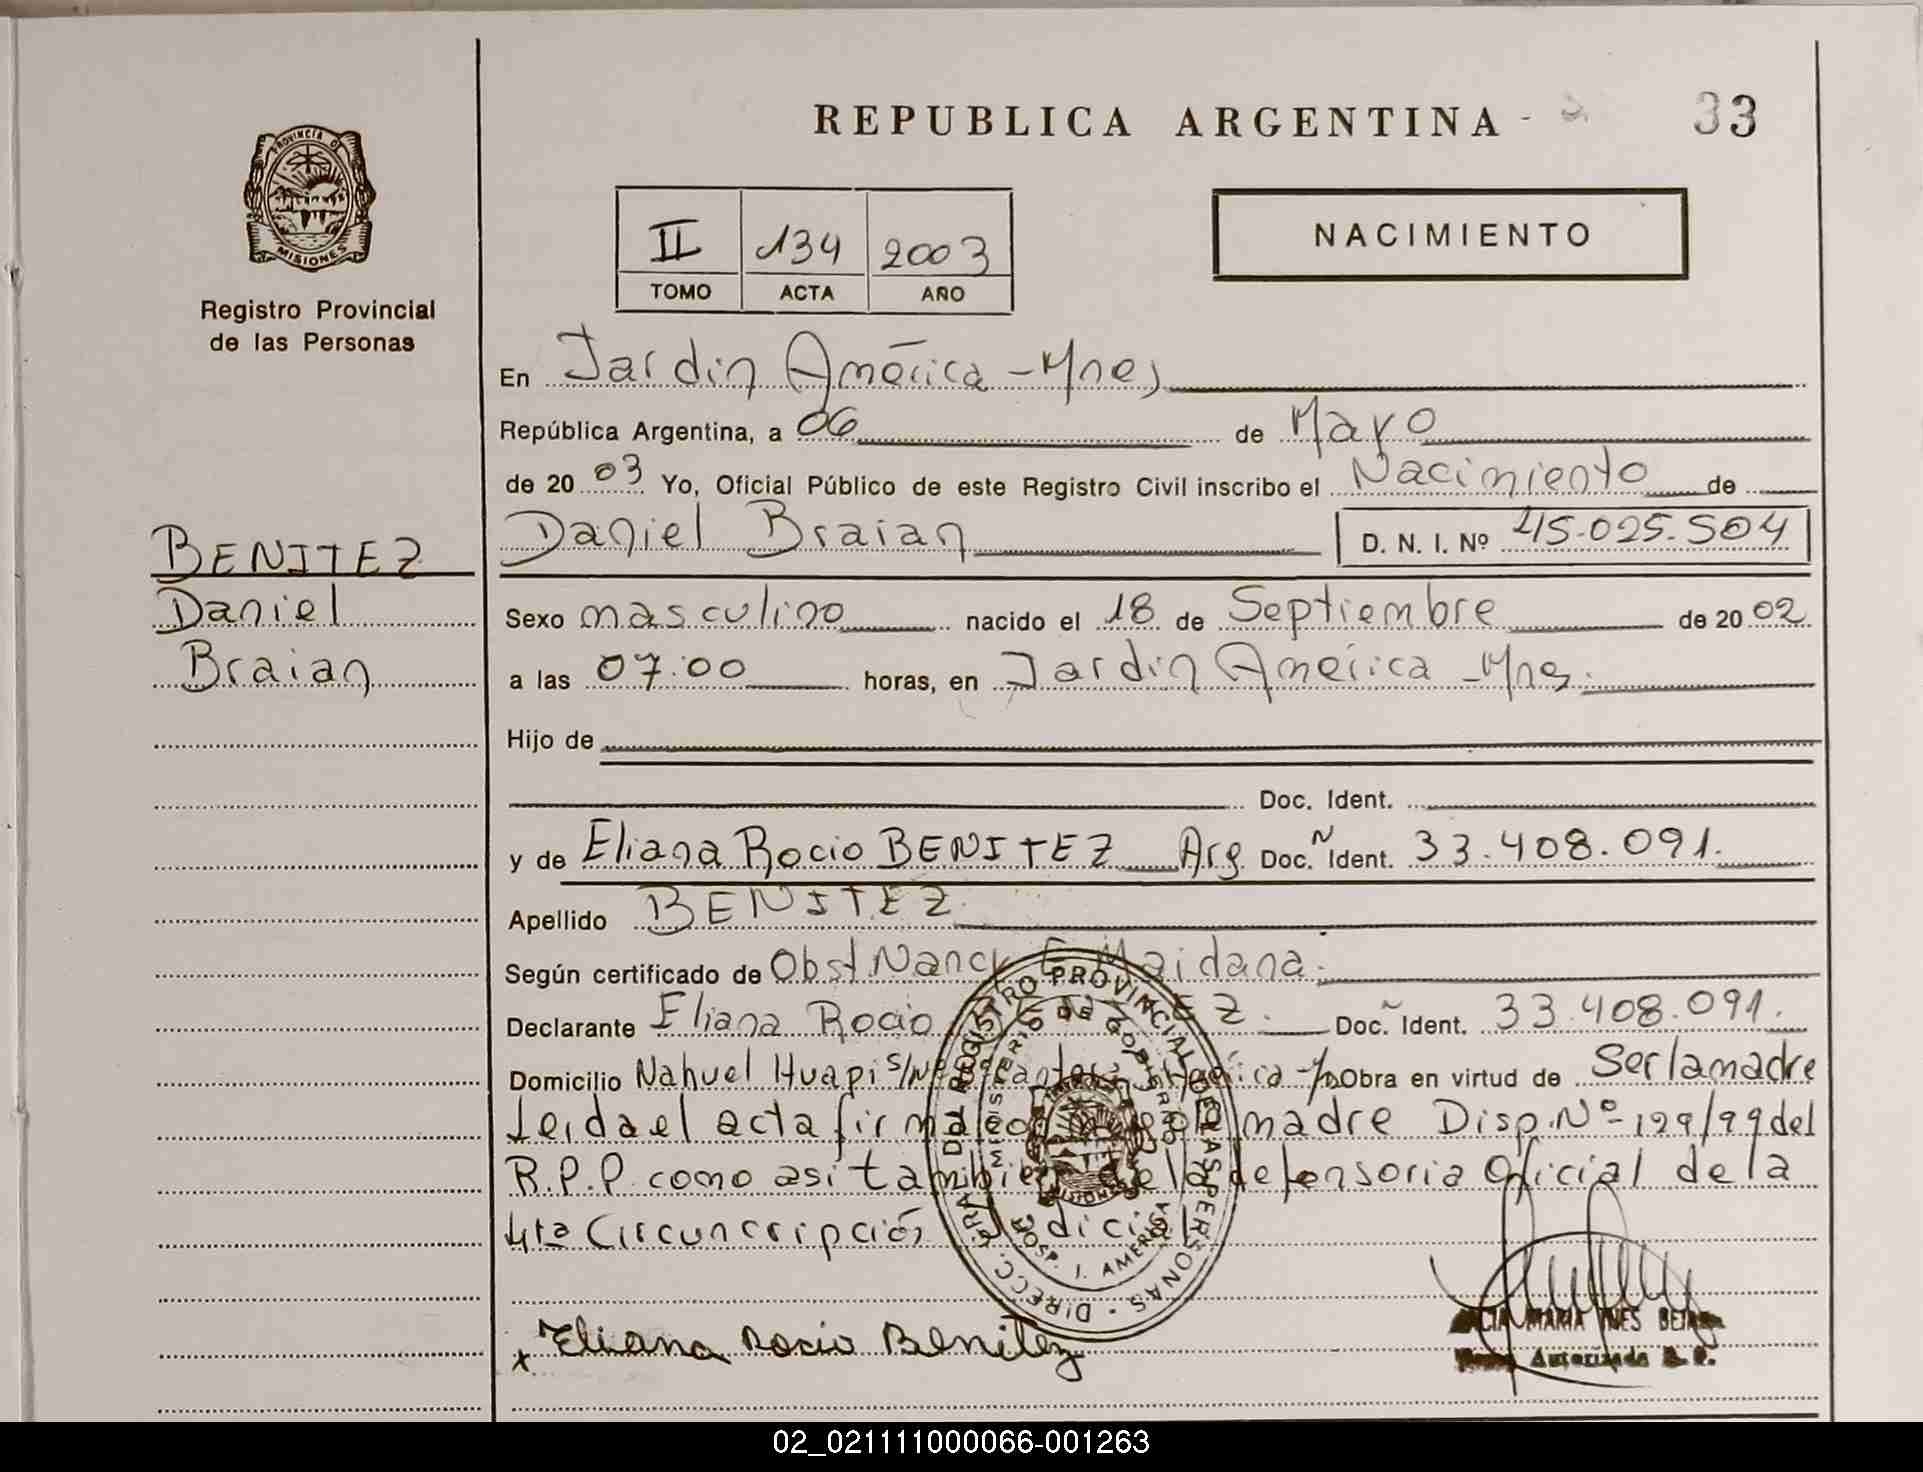 REPUBLICA ARGENTINA
33
PROVINCIA D
MISIONES
Registro Provincial
de las Personas
II 134 2003
TOMO ACTA AÑO
NACIMIENTO
En Jardin América - Mnes
República Argentina, a 06 de Mayo
de 20 03 Yo, Oficial Público de este Registro Civil inscribo el Nacimiento de
Daniel Braian D. N. I. Nº 45.025.504
BENITEZ
Daniel
Braian
Sexo masculino nacido el 18 de Septiembre de 20 02
a las 07:00 horas, en Jardin América - Mnes.
Hijo de
Doc. Ident.
y de Eliana Rocio BENITEZ Arg Doc. Ñ Ident. 33.408.091.
Apellido BENITEZ
Según certificado de Obst. Nancy E. Maidana.
Declarante Eliana Rocio EZ. Doc. Ident. 33.408.091.
Domicilio Nahuel Huapi s/Nº Obra en virtud de Ser la madre
Leida el acta firma madre Disp. Nº 199/99 del
R.P.P. como asi tambien de la defensoria Oficial de la
4ta Circuncripción
DIRECC. GRAL. DEL REGISTRO PROVINCIAL DE LAS PERSONAS
MINISTERIO DE GOBIERNO
HOSP. J. AMERICA
x Eliana Rocio Benitez
MARIA INES
Autorizada R. P.
02_021111000066-001263